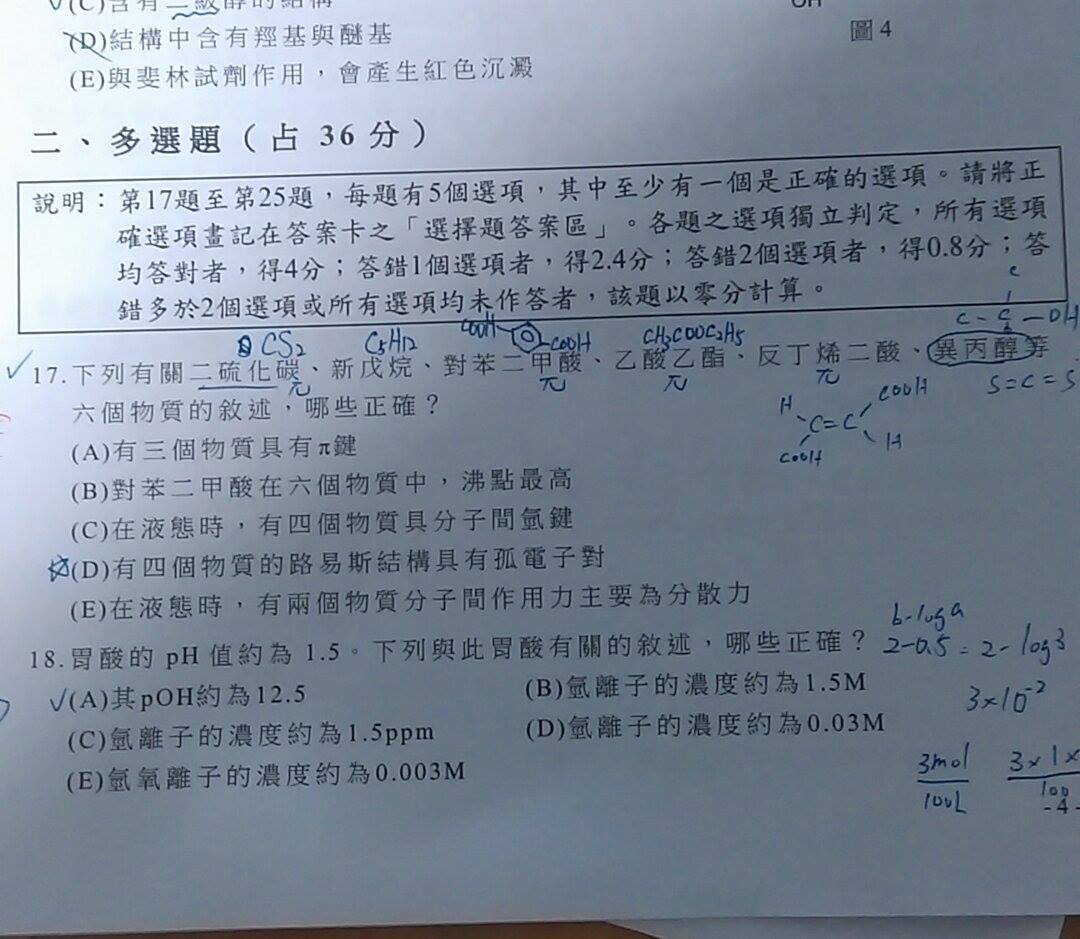 (C)含有二級醇的結構
OH
(D)結構中含有羥基與醚基
圖4
(E)與斐林試劑作用，會產生紅色沉澱
二、多選題（占 36 分）
說明：第17題至第25題，每題有5個選項，其中至少有一個是正確的選項。請將正
確選項畫記在答案卡之「選擇題答案區」。各題之選項獨立判定，所有選項
均答對者，得4分；答錯1個選項者，得2.4分；答錯2個選項者，得0.8分；答
錯多於2個選項或所有選項均未作答者，該題以零分計算。
c
C-C-OH
CS2 C5H12 COOH COOH CH3COOC2H5
17.下列有關二硫化碳、新戊烷、對苯二甲酸、乙酸乙酯、反丁烯二酸、異丙醇等
π π π π
S=C=S
六個物質的敘述，哪些正確？
H COOH
C=C
COOH H
(A)有三個物質具有π鍵
(B)對苯二甲酸在六個物質中，沸點最高
(C)在液態時，有四個物質具分子間氫鍵
(D)有四個物質的路易斯結構具有孤電子對
(E)在液態時，有兩個物質分子間作用力主要為分散力
b-loga
18.胃酸的 pH 值約為 1.5。下列與此胃酸有關的敘述，哪些正確？
2-0.5=2-log3
(A)其pOH約為12.5
(B)氫離子的濃度約為1.5M
3×10-2
(C)氫離子的濃度約為1.5ppm
(D)氫離子的濃度約為0.03M
(E)氫氧離子的濃度約為0.003M
3mol 3×1×
100L 100
-4-